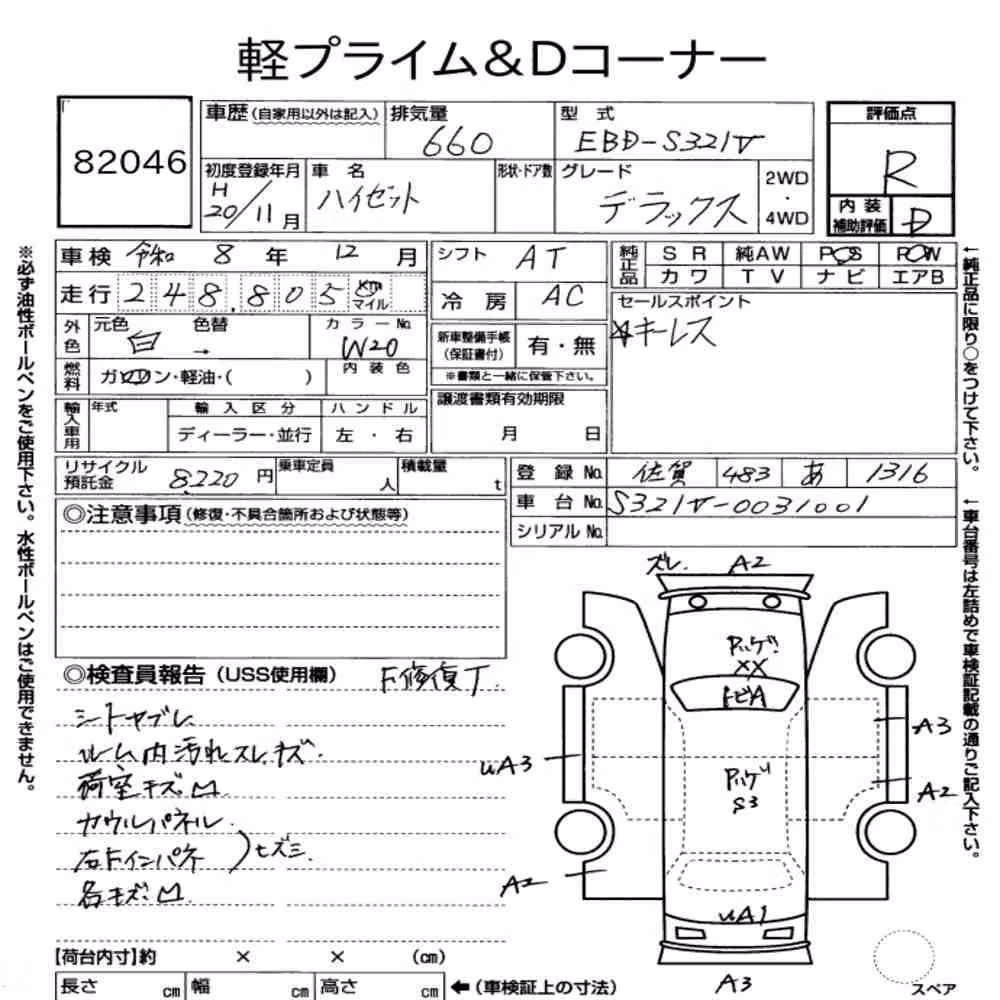 軽プライム&Dコーナー
82046
車歴(自家用以外は記入) 排気量 660 型式 EBD-S321V 評価点 R
初度登録年月 H20/11月 車名 ハイゼット 形状・ドア数 グレード デラックス 2WD・4WD 内装補助評価 D
車検 令和 8年 12月 シフト AT 純正品 SR 純AW PS PW
カワ TV ナビ エアB
走行 248,805 km マイル 冷房 AC セールスポイント
☆キーレス
外色 元色 白 色替 → カラーNo. W20 新車整備手帳(保証書付) 有・無
※書類と一緒に保管下さい。
燃料 ガソリン・軽油・( ) 内装色
譲渡書類有効期限
月 日
輸入車用 年式 輸入区分 ハンドル
ディーラー・並行 左・右
リサイクル預託金 8,220円 乗車定員 人 積載量 t 登録No. 佐賀 483 あ 1316
車台No. S321V-0031001
シリアルNo.
◎注意事項(修復・不具合箇所および状態等)
◎検査員報告(USS使用欄) F修復丁
シートヤブレ
ルーム内汚れスレキズ.
荷室キズ凹
カウルパネル
右Fインパネ)ヒズミ.
各キズ凹
ズレ. A2
ハゲ XX
トビA
A3
uA3
A2
ハゲ S3
A2
uA1
A3
スペア
【荷台内寸】約 × × (cm)
長さ cm 幅 cm 高さ cm ←(車検証上の寸法)
※必ず油性ボールペンをご使用下さい。水性ボールペンはご使用できません。
←純正品に限り○をつけて下さい。
←車台番号は左詰めで車検証記載の通りご記入下さい。